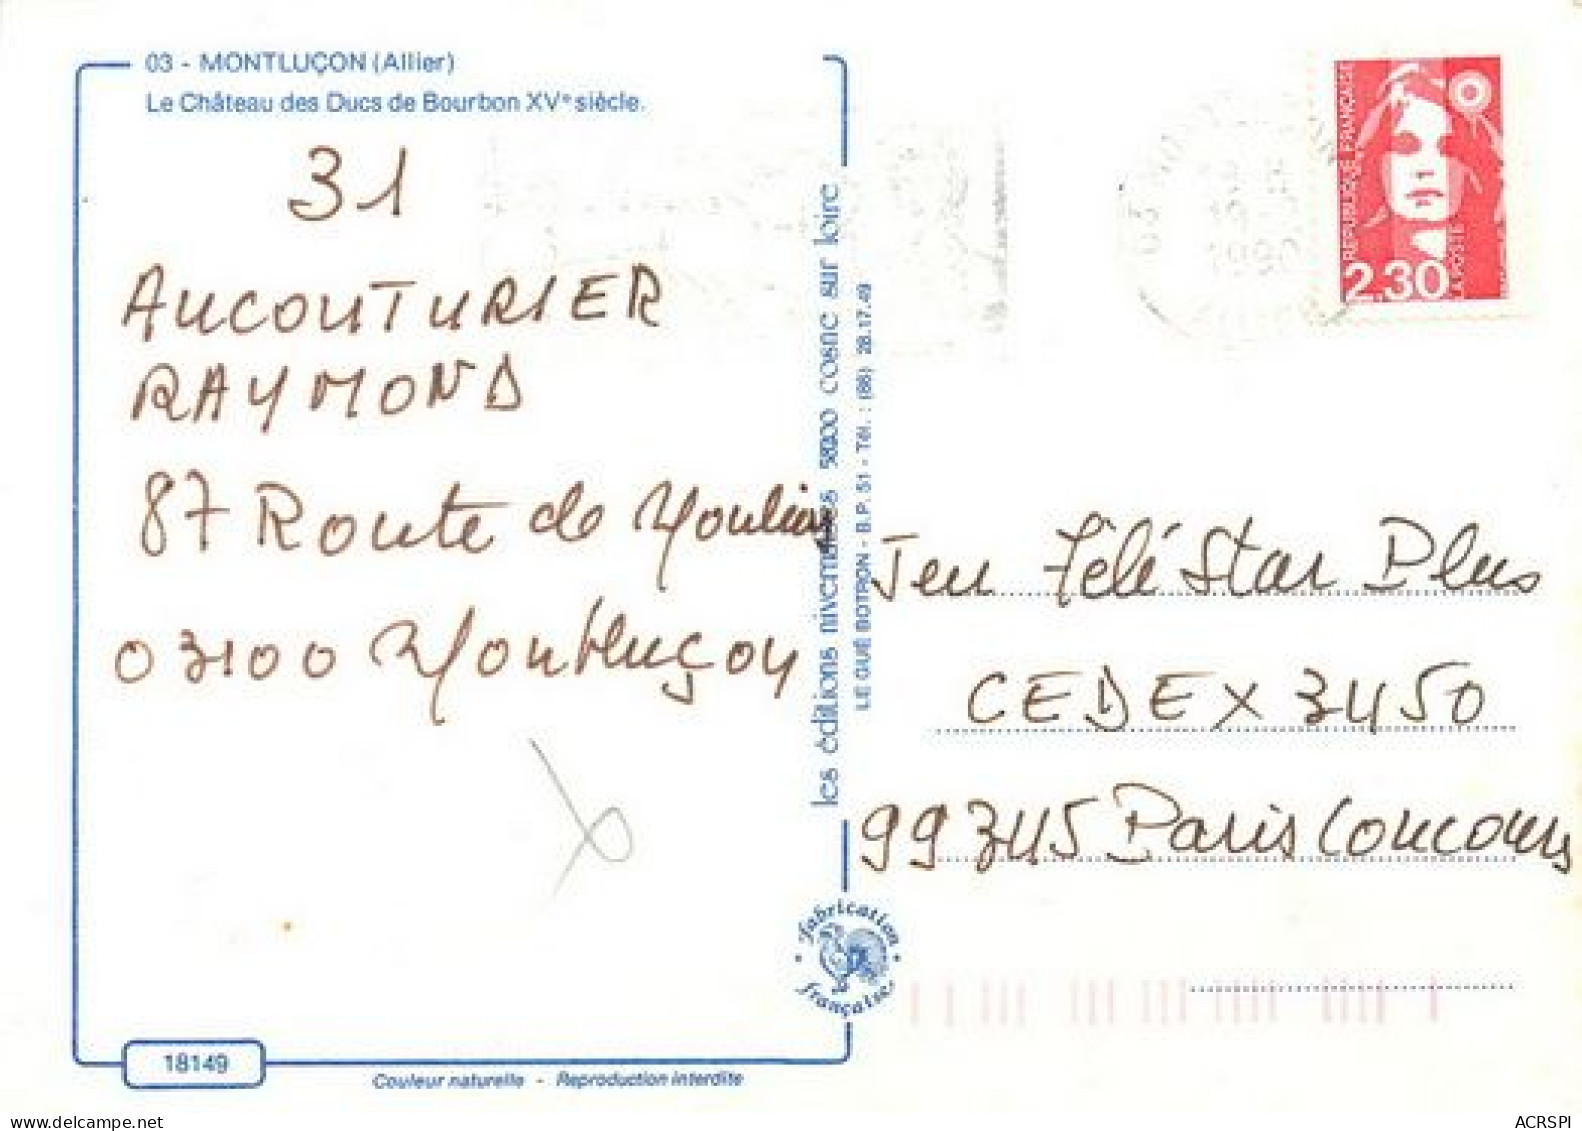 03 - MONTLUÇON (Allier)
Le Château des Ducs de Bourbon XVe siècle.
31
AUCOUTURIER
RAYMOND
87 Route de Moulins
03100 Montluçon
les éditions nivernaises 58200 cosne sur loire
LE GUÉ BOTRON - B.P. 51 - Tél. : (86) 28.17.49
RÉPUBLIQUE FRANÇAISE
LA POSTE
2,30
Jeu Télé Star Plus
CEDEX 3450
99345 Paris Concours
fabrication
française
18149
Couleur naturelle - Reproduction interdite
delcampe.net
ACRSPI